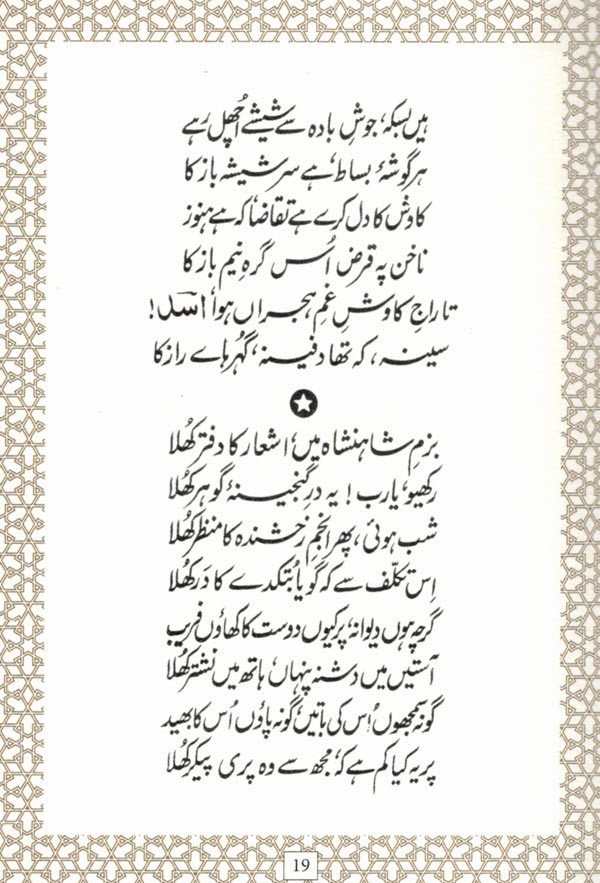 ہیں بسکہ، جوشِ بادہ سے شیشے اُچھل رہے
ہر گوشۂ بساط، ہے سر شیشہ باز کا
کاوش کا دل کرے ہے تقاضا، کہ ہے ہنوز
ناخن پہ قرض اُس گرہِ نیم باز کا
تاراجِ کاوشِ غمِ ہجراں ہوا، اسدؔ!
سینہ، کہ تھا دفینہ، گُہر ہاے راز کا
بزمِ شاہنشاہ میں، اشعار کا دفتر کھُلا
رکھیو، یارب! یہ درِ گنجینۂ گوہر کھُلا
شب ہوئی، پھر انجمِ رخشندہ کا منظر کھُلا
اِس تکلّف سے کہ گویا بُتکدے کا دَر کھُلا
گرچہ ہوں دیوانہ، پر کیوں دوست کا کھاؤں فریب
آستیں میں دشنہ پنہاں، ہاتھ میں نشتر کھُلا
گو نہ سمجھوں اُس کی باتیں، گو نہ پاؤں اُس کا بھید
پر یہ کیا کم ہے کہ، مجھ سے وہ پری پیکر کھُلا
19